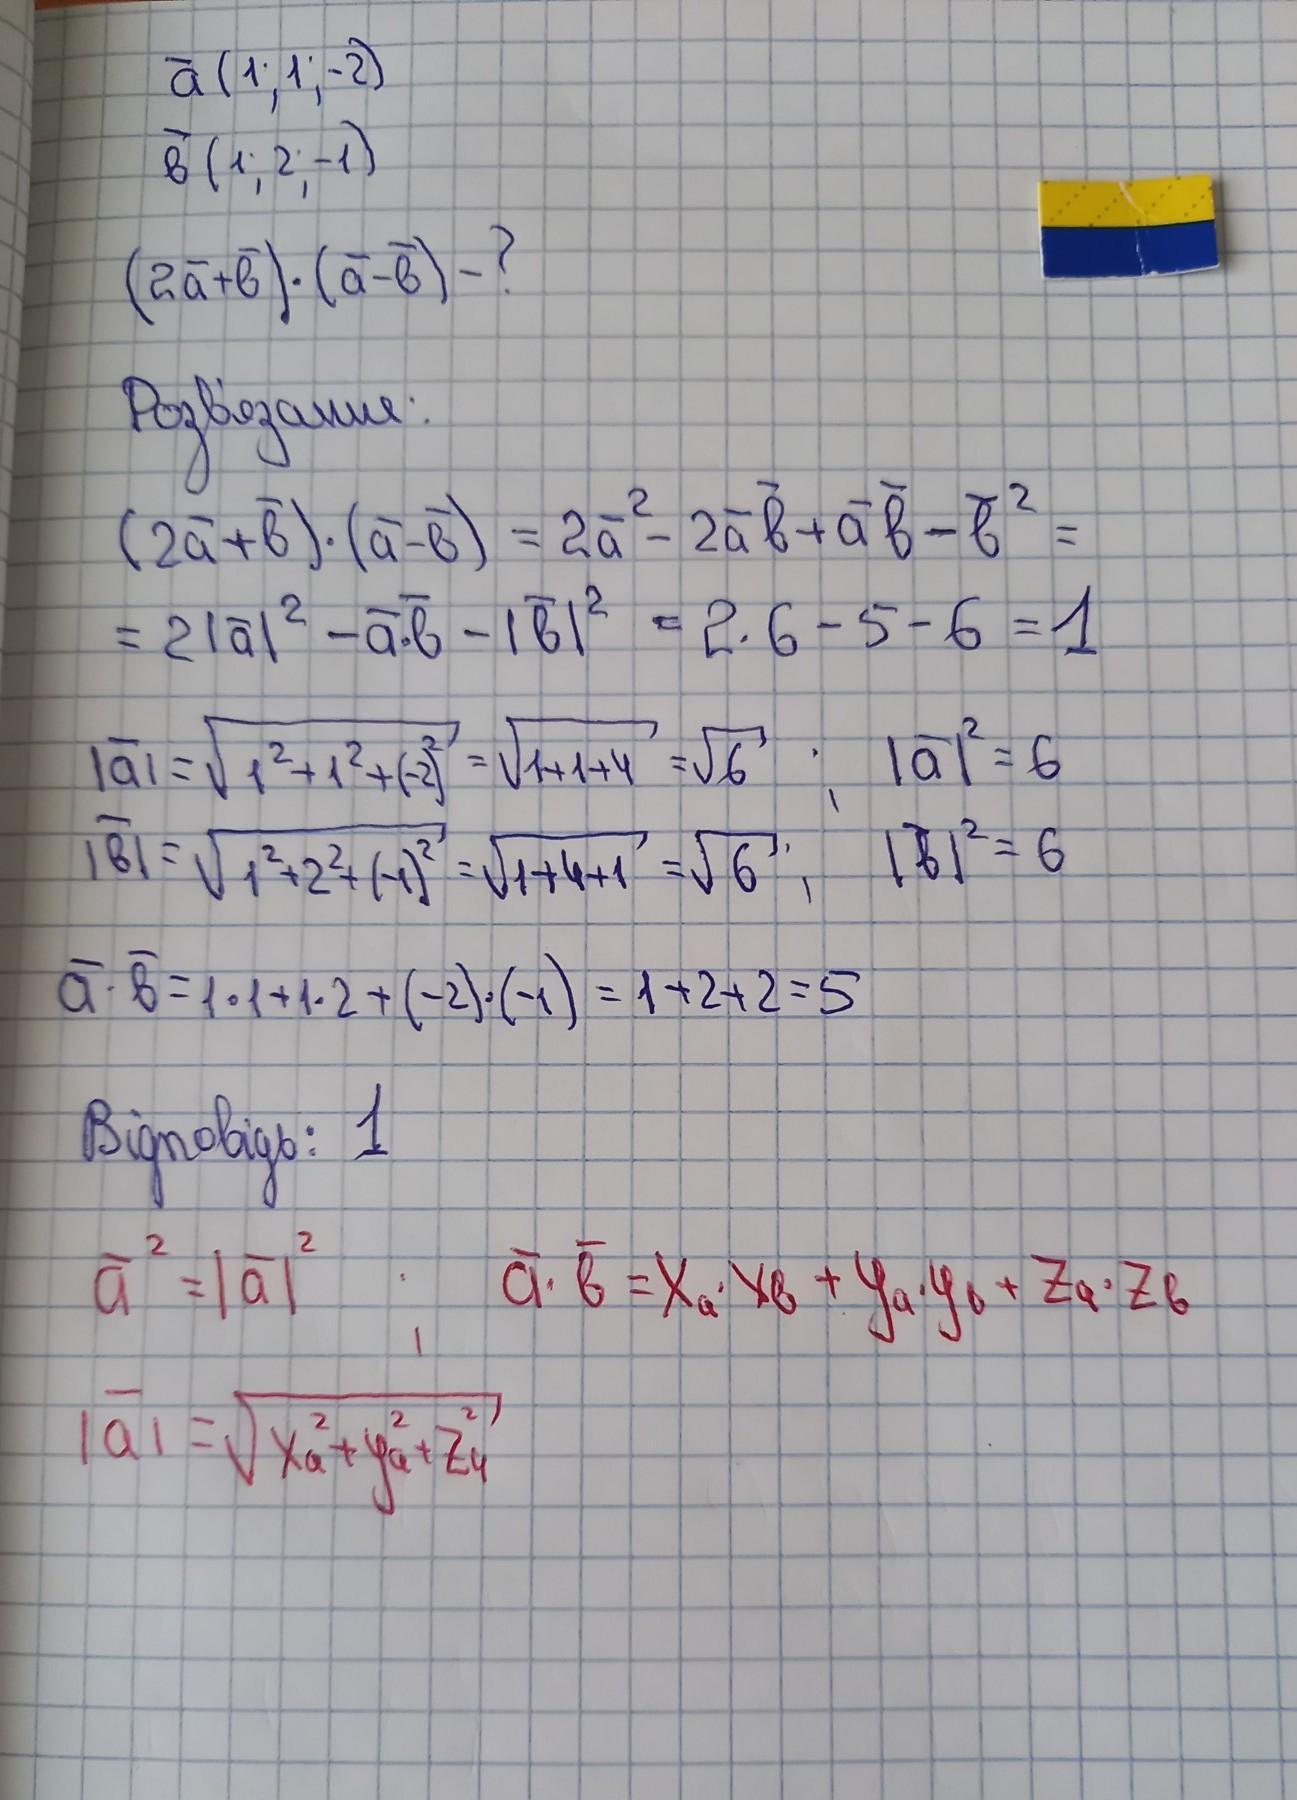 a̅ (1; 1; -2)
b̅ (1; 2; -1)
(2a̅+b̅)·(a̅-b̅) - ?
Розв'язання:
(2a̅+b̅)·(a̅-b̅) = 2a̅² - 2a̅b̅ + a̅b̅ - b̅² =
= 2|a̅|² - a̅·b̅ - |b̅|² = 2·6 - 5 - 6 = 1
|a̅| = √(1²+1²+(-2)²) = √(1+1+4) = √6 ; |a̅|² = 6
|b̅| = √(1²+2²+(-1)²) = √(1+4+1) = √6 ; |b̅|² = 6
a̅·b̅ = 1·1+1·2+(-2)·(-1) = 1+2+2 = 5
Відповідь: 1
a̅² = |a̅|² ; a̅·b̅ = xₐ·x_b + yₐ·y_b + zₐ·z_b
|a̅| = √(xₐ²+yₐ²+zₐ²)